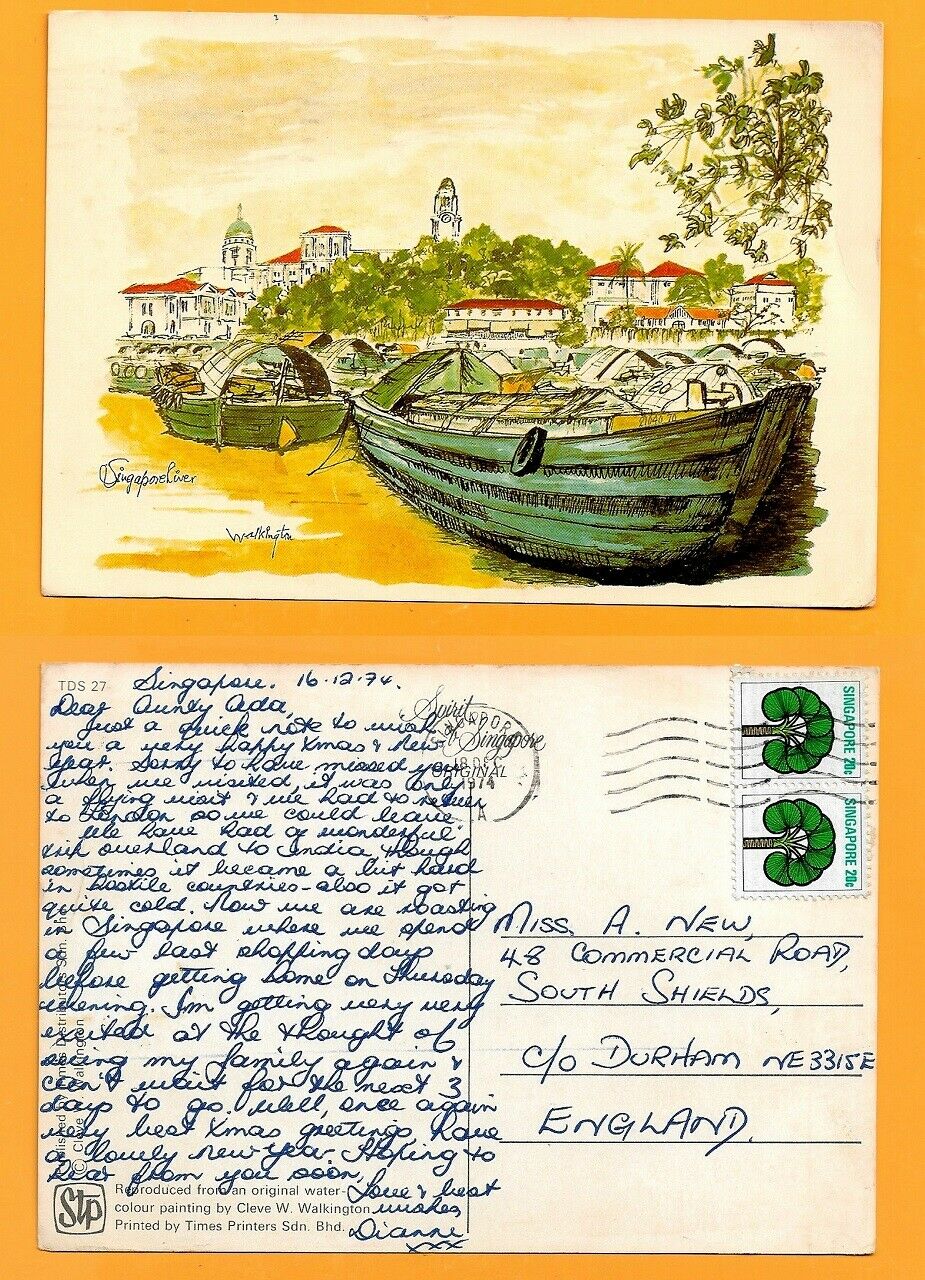 Singapore River
Walkington
TDS 27
Singapore. 16.12.74.
Dear Aunty Ada,
Just a quick note to wish
you a very happy Xmas & New
Year. Sorry to have missed you
when we visited, it was only
a flying visit & we had to return
to London so we could leave
We have had a wonderful
trip overland to India though
sometimes it became a bit hard
in hostile countries - also it got
quite cold. Now we are roasting
in Singapore where we spend
a few last shopping days
before getting home on Thursday
evening. I'm getting very very
excited at the thought of
seeing my family again &
can't wait for the next 3
days to go. Well, once again
very best Xmas greetings, have
a lovely new year. Hoping to
hear from you soon,
Love & best
wishes
Dianne
xxx
Spirit
of Singapore
ORIGINAL
SINGAPORE
18 DEC
1974
A
SINGAPORE 20c
SINGAPORE 20c
MISS. A. NEW,
48 COMMERCIAL ROAD,
SOUTH SHIELDS,
C/O DURHAM NE33 15E
ENGLAND.
Distributors Sdn.
© Cleve Walkington
Stp
Reproduced from an original water-
colour painting by Cleve W. Walkington
Printed by Times Printers Sdn. Bhd.